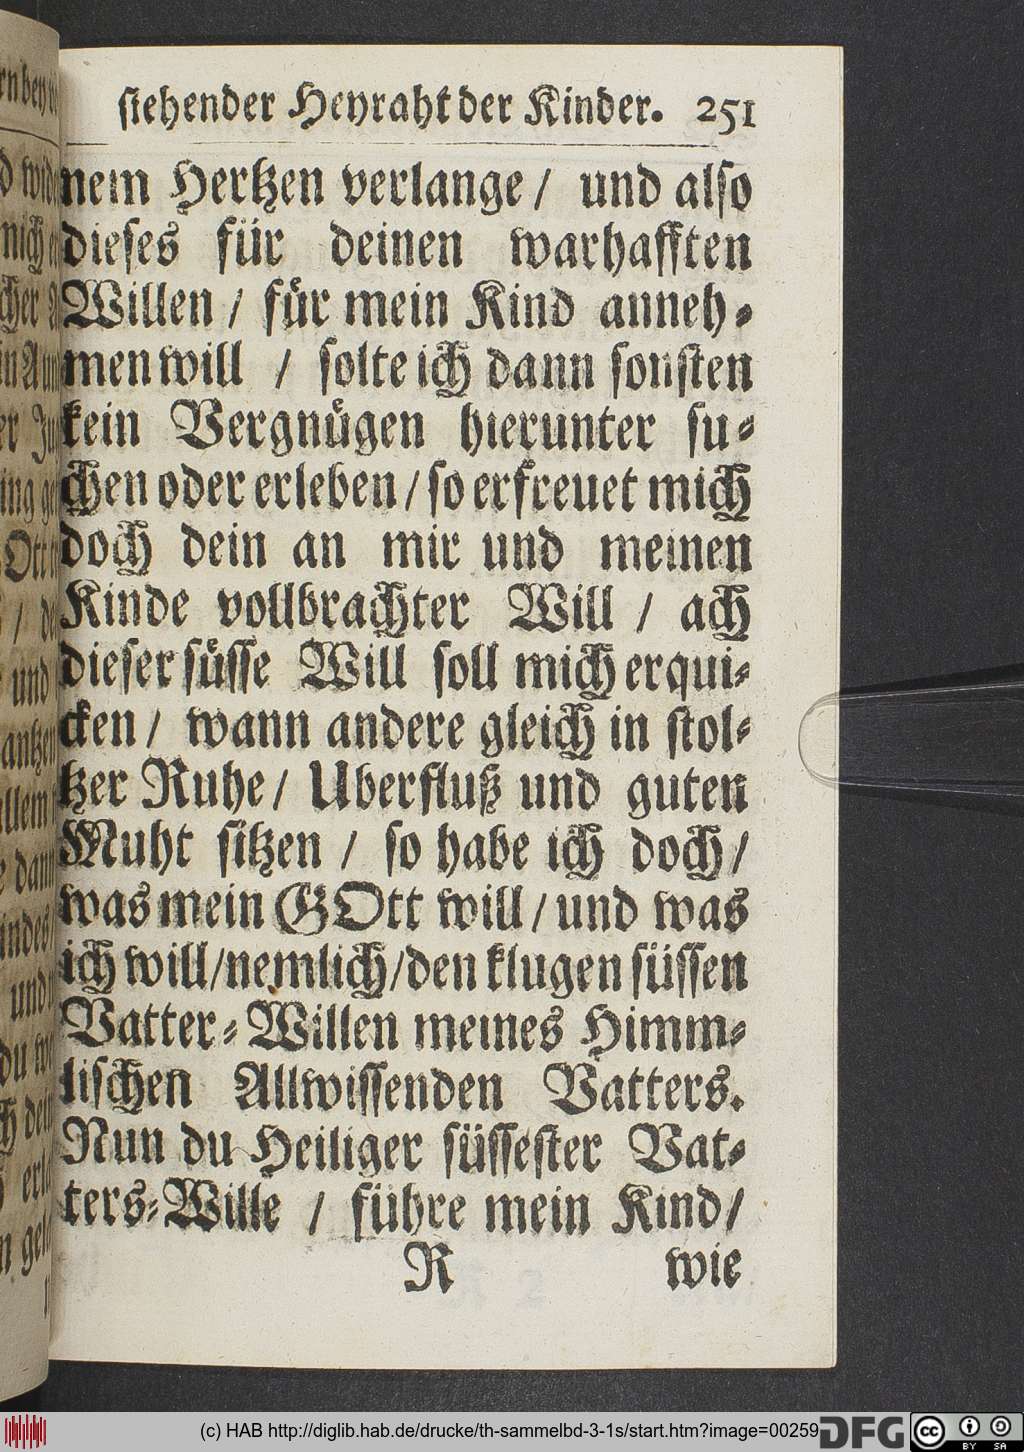 stehender Heyraht der Kinder. 251
nem Hertzen verlange / und also
dieses für deinen warhafften
Willen / für mein Kind anneh-
men will / solte ich dann sonsten
kein Vergnügen hierunter su-
chen oder erleben / so erfreuet mich
doch dein an mir und meinen
Kinde vollbrachter Will / ach
dieser süsse Will soll mich erqui-
cken / wann andere gleich in stol-
tzer Ruhe / Uberfluß und guten
Muht sitzen / so habe ich doch /
was mein GOtt will / und was
ich will / nemlich / den klugen süssen
Vatter-Willen meines Himm-
lischen Allwissenden Vatters.
Nun du Heiliger süssester Vat-
ters-Wille / führe mein Kind /
R wie
(c) HAB http://diglib.hab.de/drucke/th-sammelbd-3-1s/start.htm?image=00259
DFG
cc BY SA